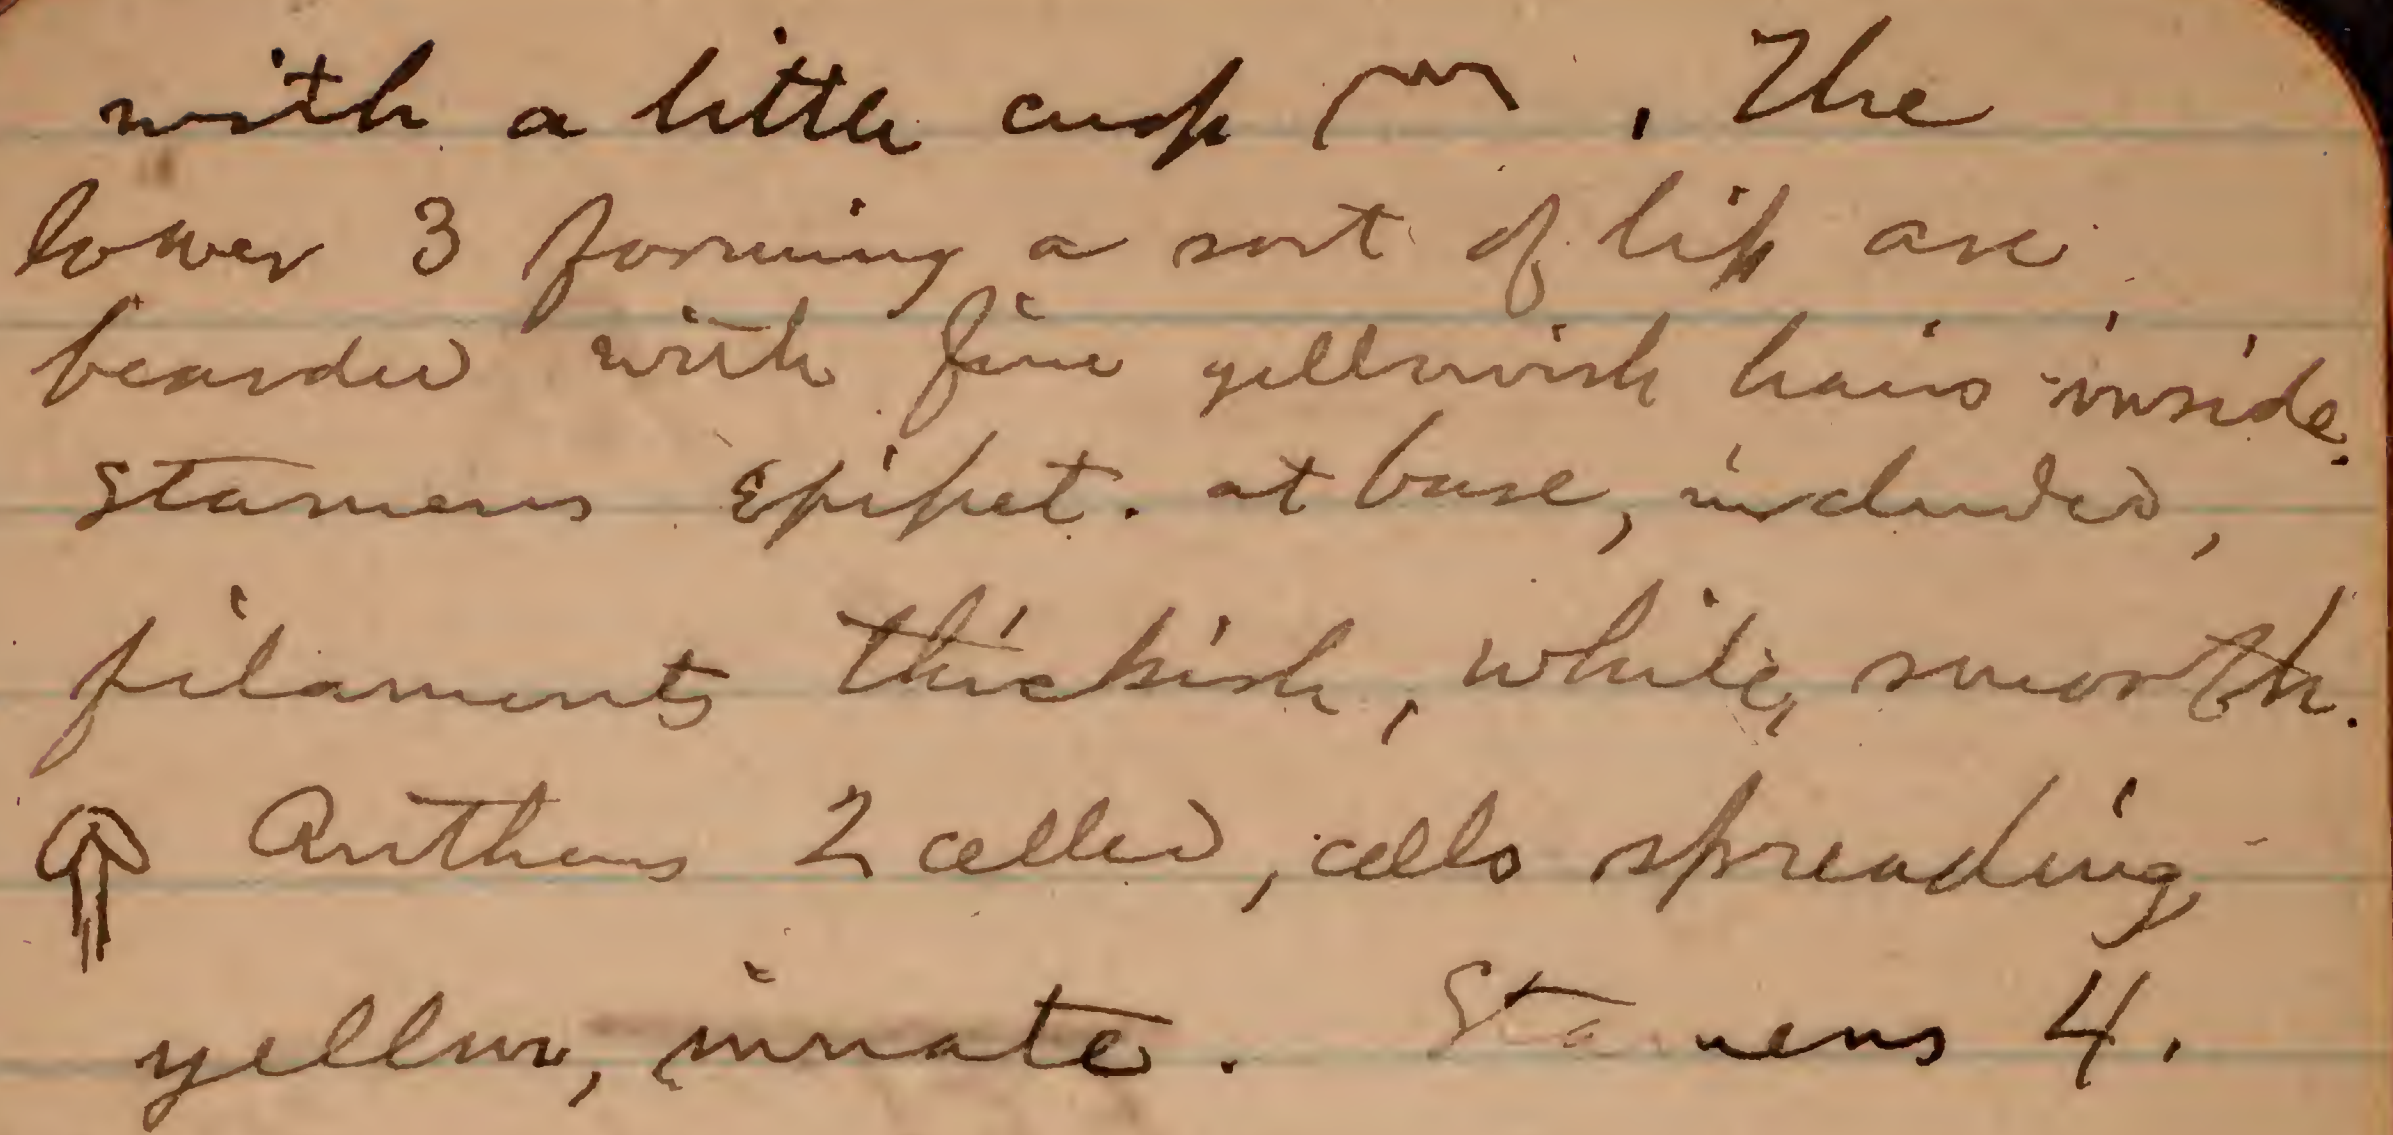 with a little cusp . The
lower 3 forming a sort of lip are
bearded with fine yellowish hairs inside.
Stamens Epipet. at base, included,
filaments thickish, white, smooth.
Anthers 2 celled, cells spreading
yellow, innate. Stamens 4.